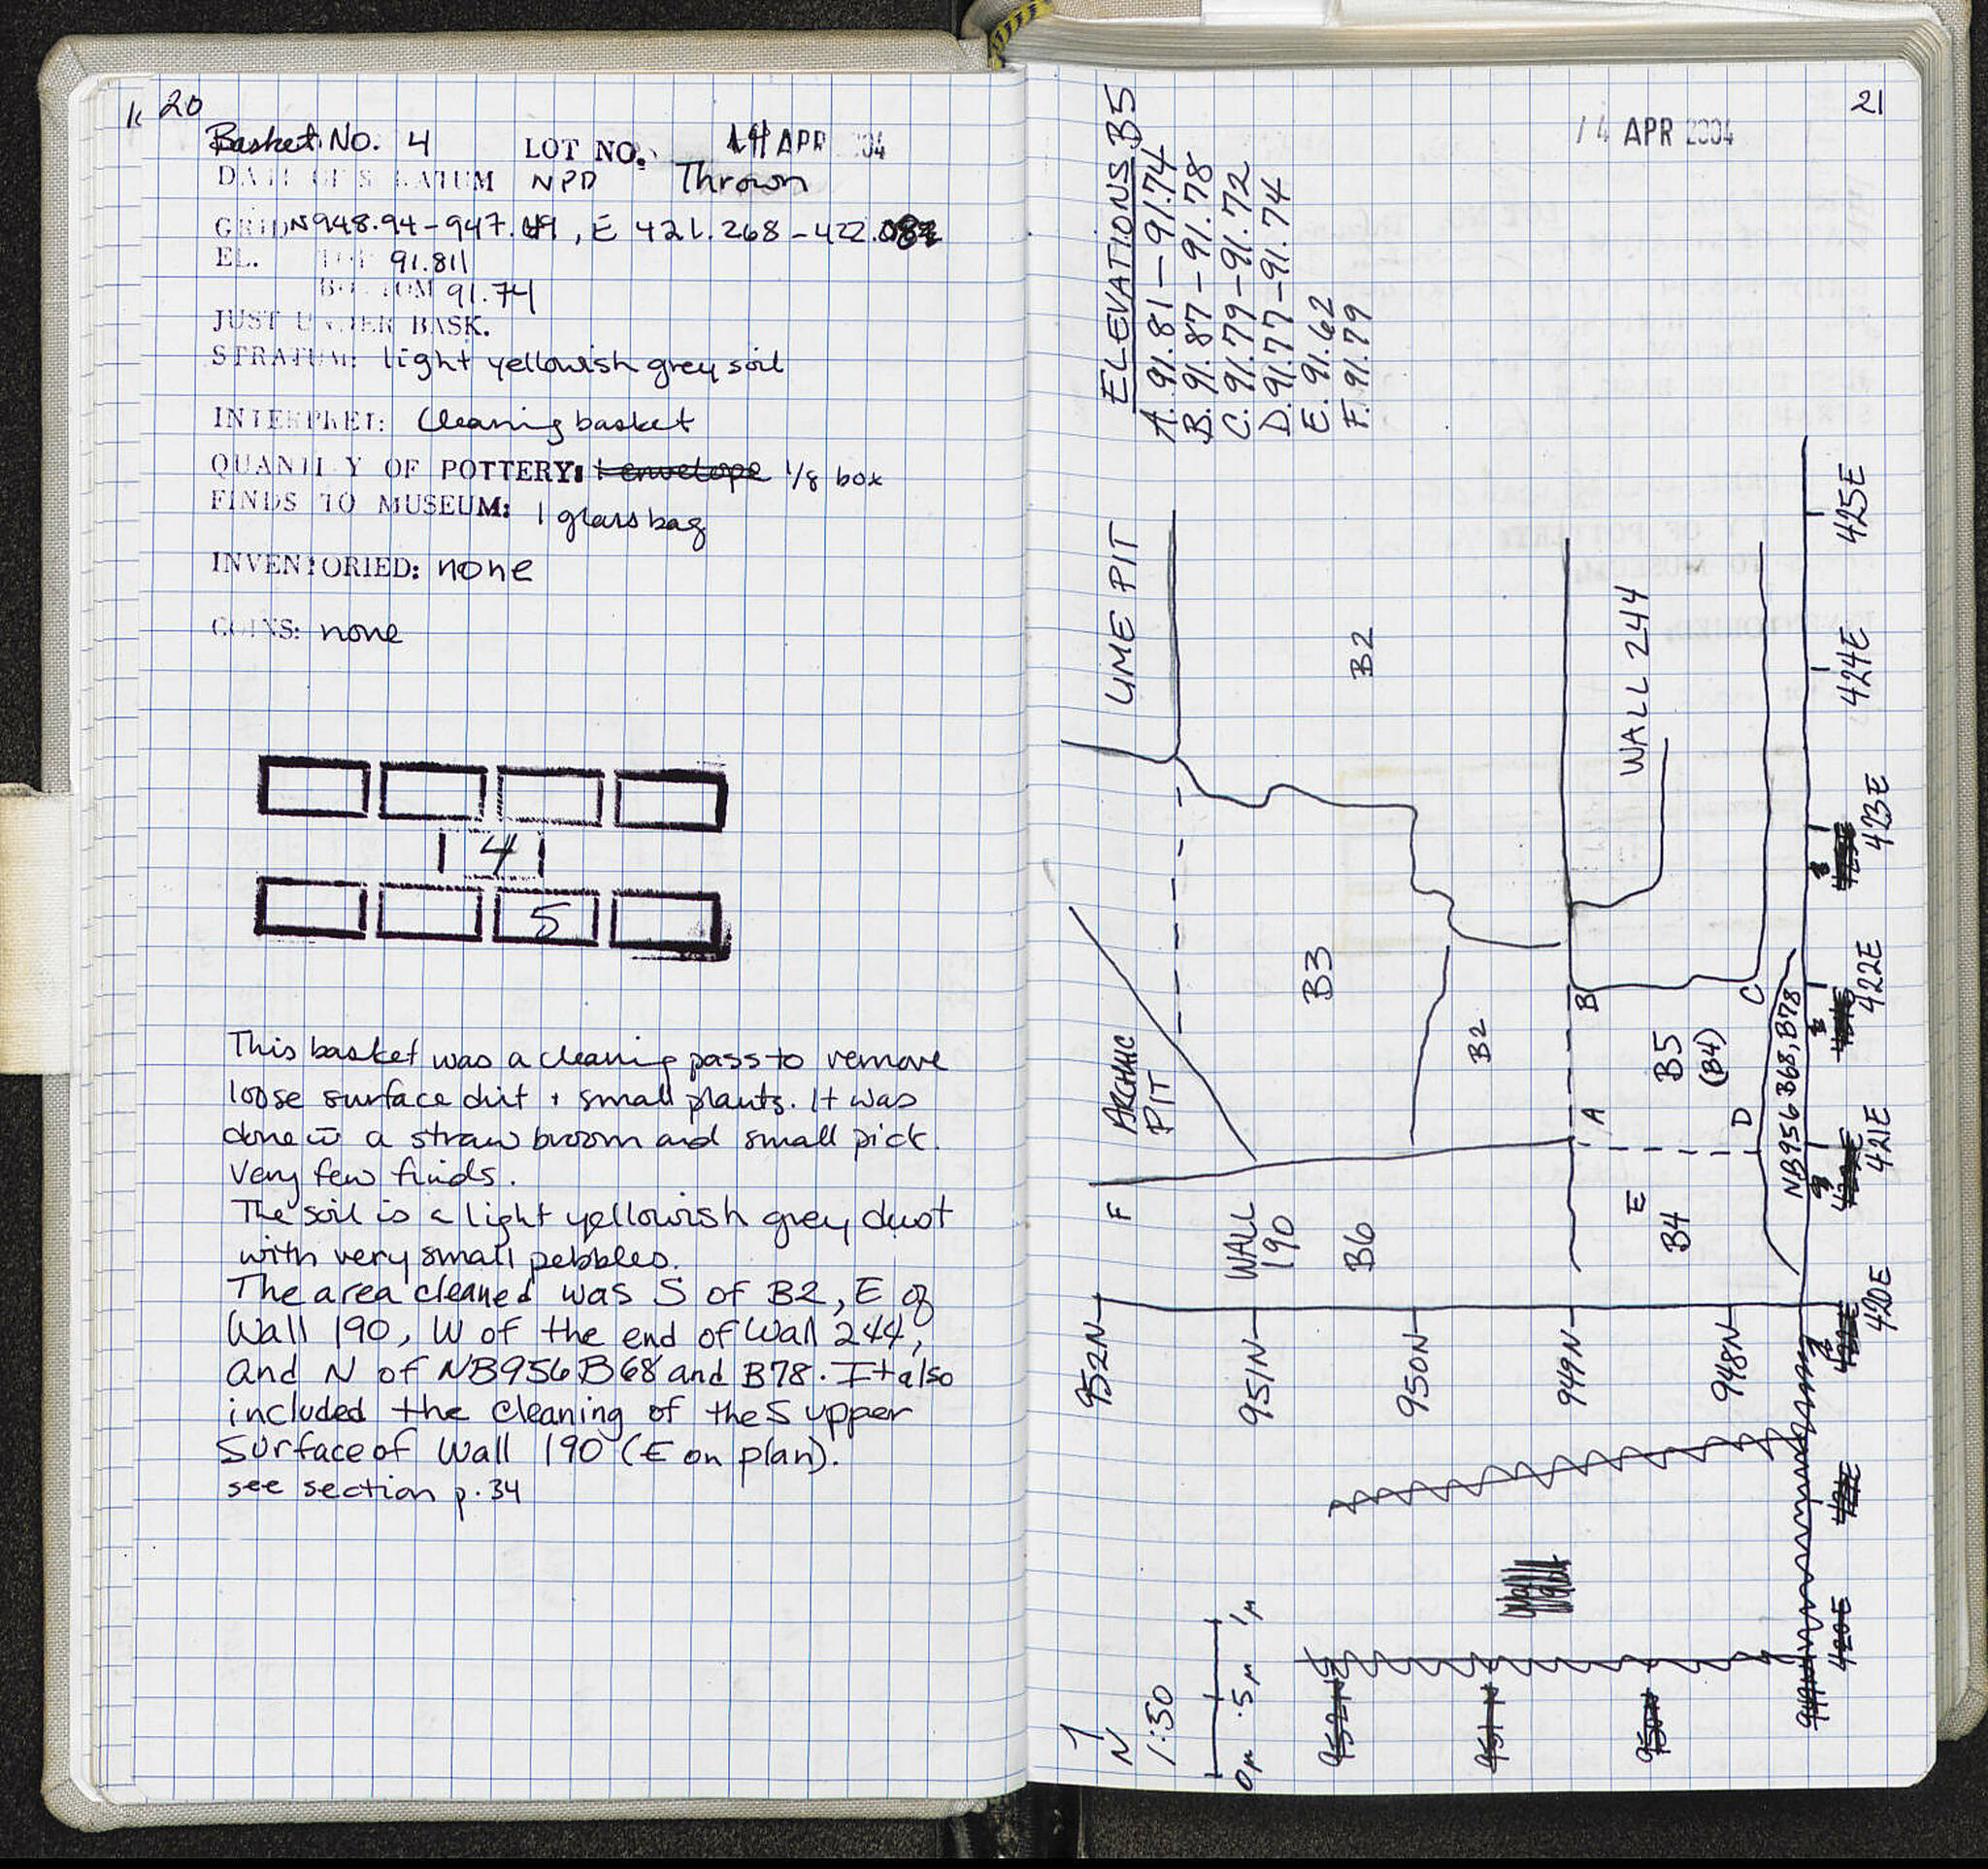 20
Basket No. 4 LOT NO. 14 APR 04
DATE OF STRATUM NPD Thrown
GRID N948.94-947.49, E 421.268-422.082
EL. TOP 91.811
BOTTOM 91.74
JUST UNDER BASK.
STRATUM: light yellowish grey soil
INTERPRET: Cleaning basket
QUANTITY OF POTTERY: 1 envelope 1/8 box
FINDS TO MUSEUM: 1 glass bag
INVENTORIED: none
COINS: none
4
5
This basket was a cleaning pass to remove
loose surface dirt + small plants. It was
done w̄ a straw broom and small pick.
Very few finds.
The soil is a light yellowish grey dust
with very small pebbles.
The area cleaned was S of B2, E of
Wall 190, W of the end of Wall 244,
and N of NB956 B68 and B78. It also
included the cleaning of the S upper
Surface of Wall 190 (E on plan).
see section p. 34
21
14 APR 2004
ELEVATIONS B5
A. 91.81-91.74
B. 91.87-91.78
C. 91.79-91.72
D. 91.77-91.74
E. 91.62
F. 91.79
LIME PIT
B2
WALL 244
ARCHAIC
PIT
B3
B2
A
B
C
D
B5
(B4)
NB956 B68, B78
F
WALL
190
B6
E
B4
952N
951N
950N
949N
948N
420E
421E
422E
423E
424E
425E
N
1:50
0M .5M 1M
952N
951N
950N
949N
420E